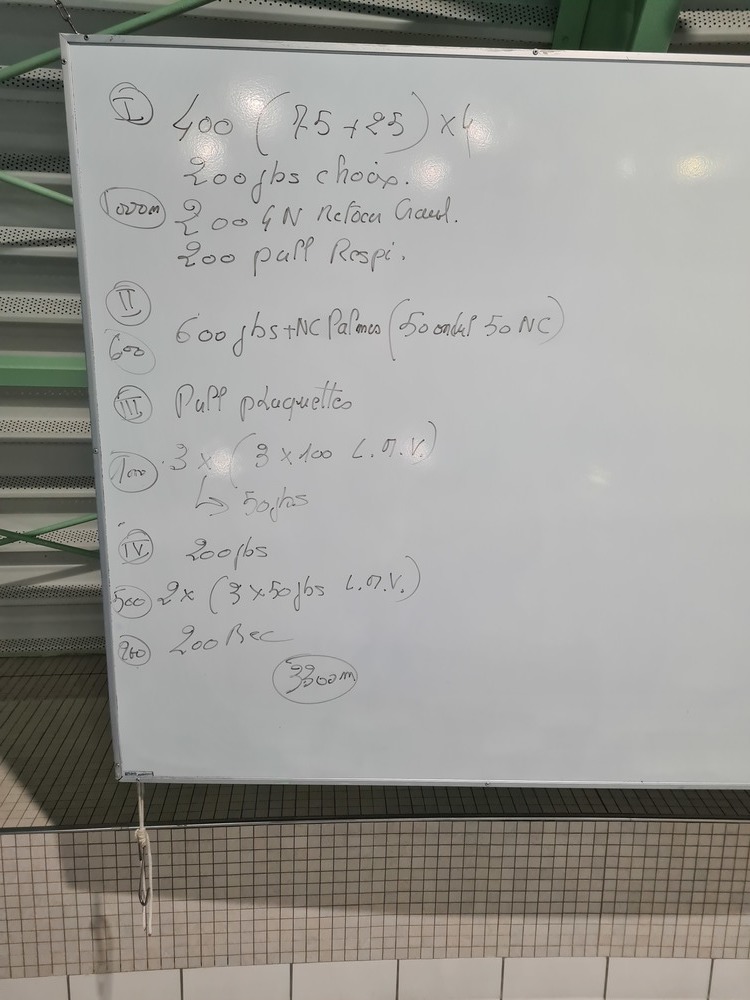 I 400 (75 + 25) x 4
200 jbs choix.
1000m 200 4 N Retour Crawl.
200 pull Respi.
II
600 600 jbs + NC Palmes (50 ondul 50 NC)
III Pull plaquettes
1000 3 x (3 x 100 L.M.V.)
↳ 50 jbs
IV 200 jbs
500 2x (3 x 50 jbs L.M.V.)
200 200 Rec
3300m